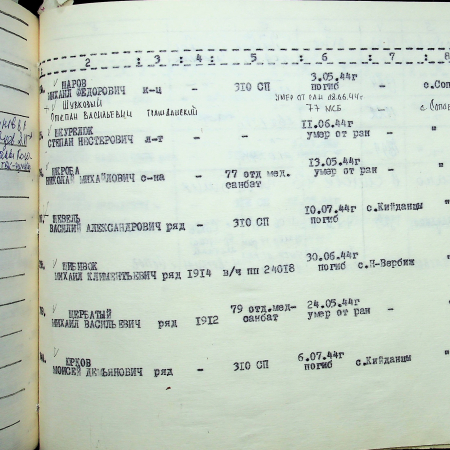 2 : 3 : 4 : 5 : 6 : 7 : 8
ШАРОВ 3.05.44г
МИХАИЛ ФЕДОРОВИЧ к-ц - 310 СП погиб - с.Сопов
Шувковый УМЕР ОТ РАН 18.06.44г
Степан Васильевич Гражданский 77 МСБ - с.Сопов
11.06.44г
СТЕПАН НЕСТЕРОВИЧ л-т - - умер от ран -
13.05.44г
НИКОЛАЙ МИХАЙЛОВИЧ с-на - 77 отд мед. умер от ран -
санбат
10.07.44г с.Кийданцы "
ВАСИЛИЙ АЛЕКСАНДРОВИЧ ряд - 310 СП погиб
30.06.44г
МИХАИЛ КЛИМЕНТЬЕВИЧ ряд 1914 в/ч пп 24018 погиб с.Н-Вербиж "
ЩЕРБАТЫЙ 79 отд.мед- 24.05.44г
МИХАИЛ ВАСИЛЬЕВИЧ ряд 1912 санбат умер от ран - "
ЮРКОВ 6.07.44г
МОИСЕЙ ДЕМЬЯНОВИЧ ряд - 310 СП погиб с.Кийданцы "